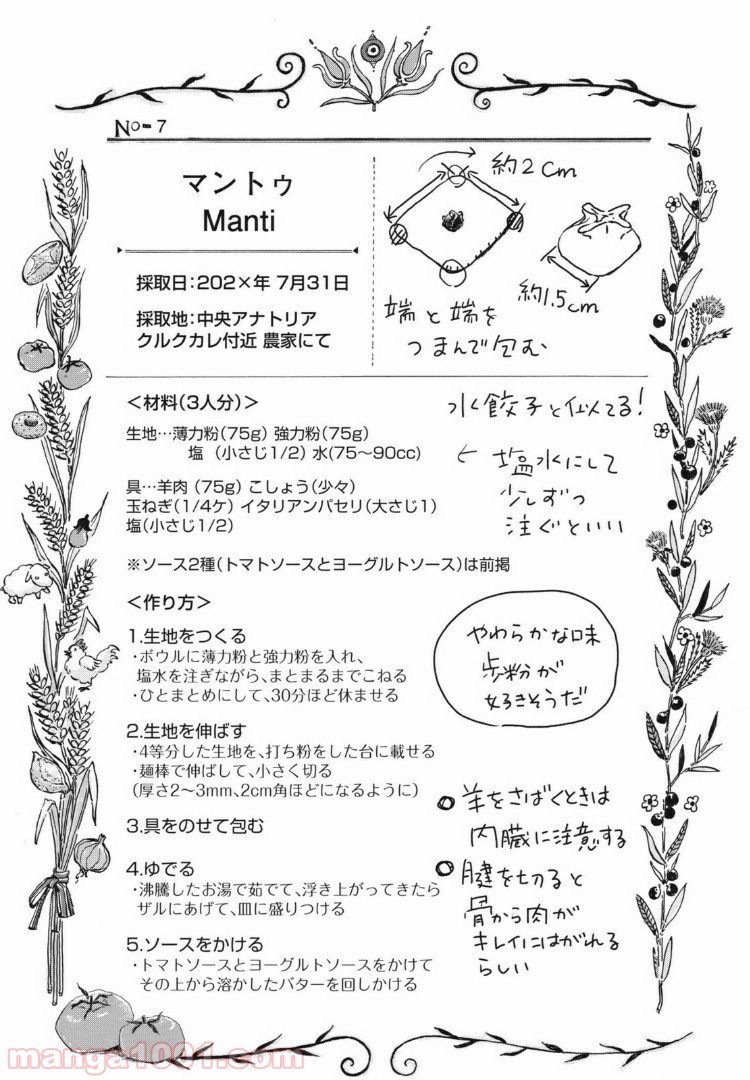 No-7
マントゥ
Manti
採取日:202×年 7月31日
採取地:中央アナトリア
クルクカレ付近 農家にて
約2cm
約1.5cm
端と端を
つまんで包む
<材料(3人分)>
生地…薄力粉(75g) 強力粉(75g)
塩 (小さじ1/2) 水(75〜90cc)
具…羊肉 (75g) こしょう(少々)
玉ねぎ(1/4ケ) イタリアンパセリ(大さじ1)
塩(小さじ1/2)
※ソース2種(トマトソースとヨーグルトソース)は前掲
水餃子と似てる!
← 塩水にして
少しずつ
注ぐといい
<作り方>
1.生地をつくる
・ボウルに薄力粉と強力粉を入れ、
塩水を注ぎながら、まとまるまでこねる
・ひとまとめにして、30分ほど休ませる
2.生地を伸ばす
・4等分した生地を、打ち粉をした台に載せる
・麺棒で伸ばして、小さく切る
(厚さ2〜3mm、2cm角ほどになるように)
3.具をのせて包む
4.ゆでる
・沸騰したお湯で茹でて、浮き上がってきたら
ザルにあげて、皿に盛りつける
5.ソースをかける
・トマトソースとヨーグルトソースをかけて
その上から溶かしたバターを回しかける
やわらかな味
歩粉が
好きそうだ
○羊をさばくときは
内臓に注意する
○腱を切ると
骨から肉が
キレイにはがれる
らしい
manga1001.com